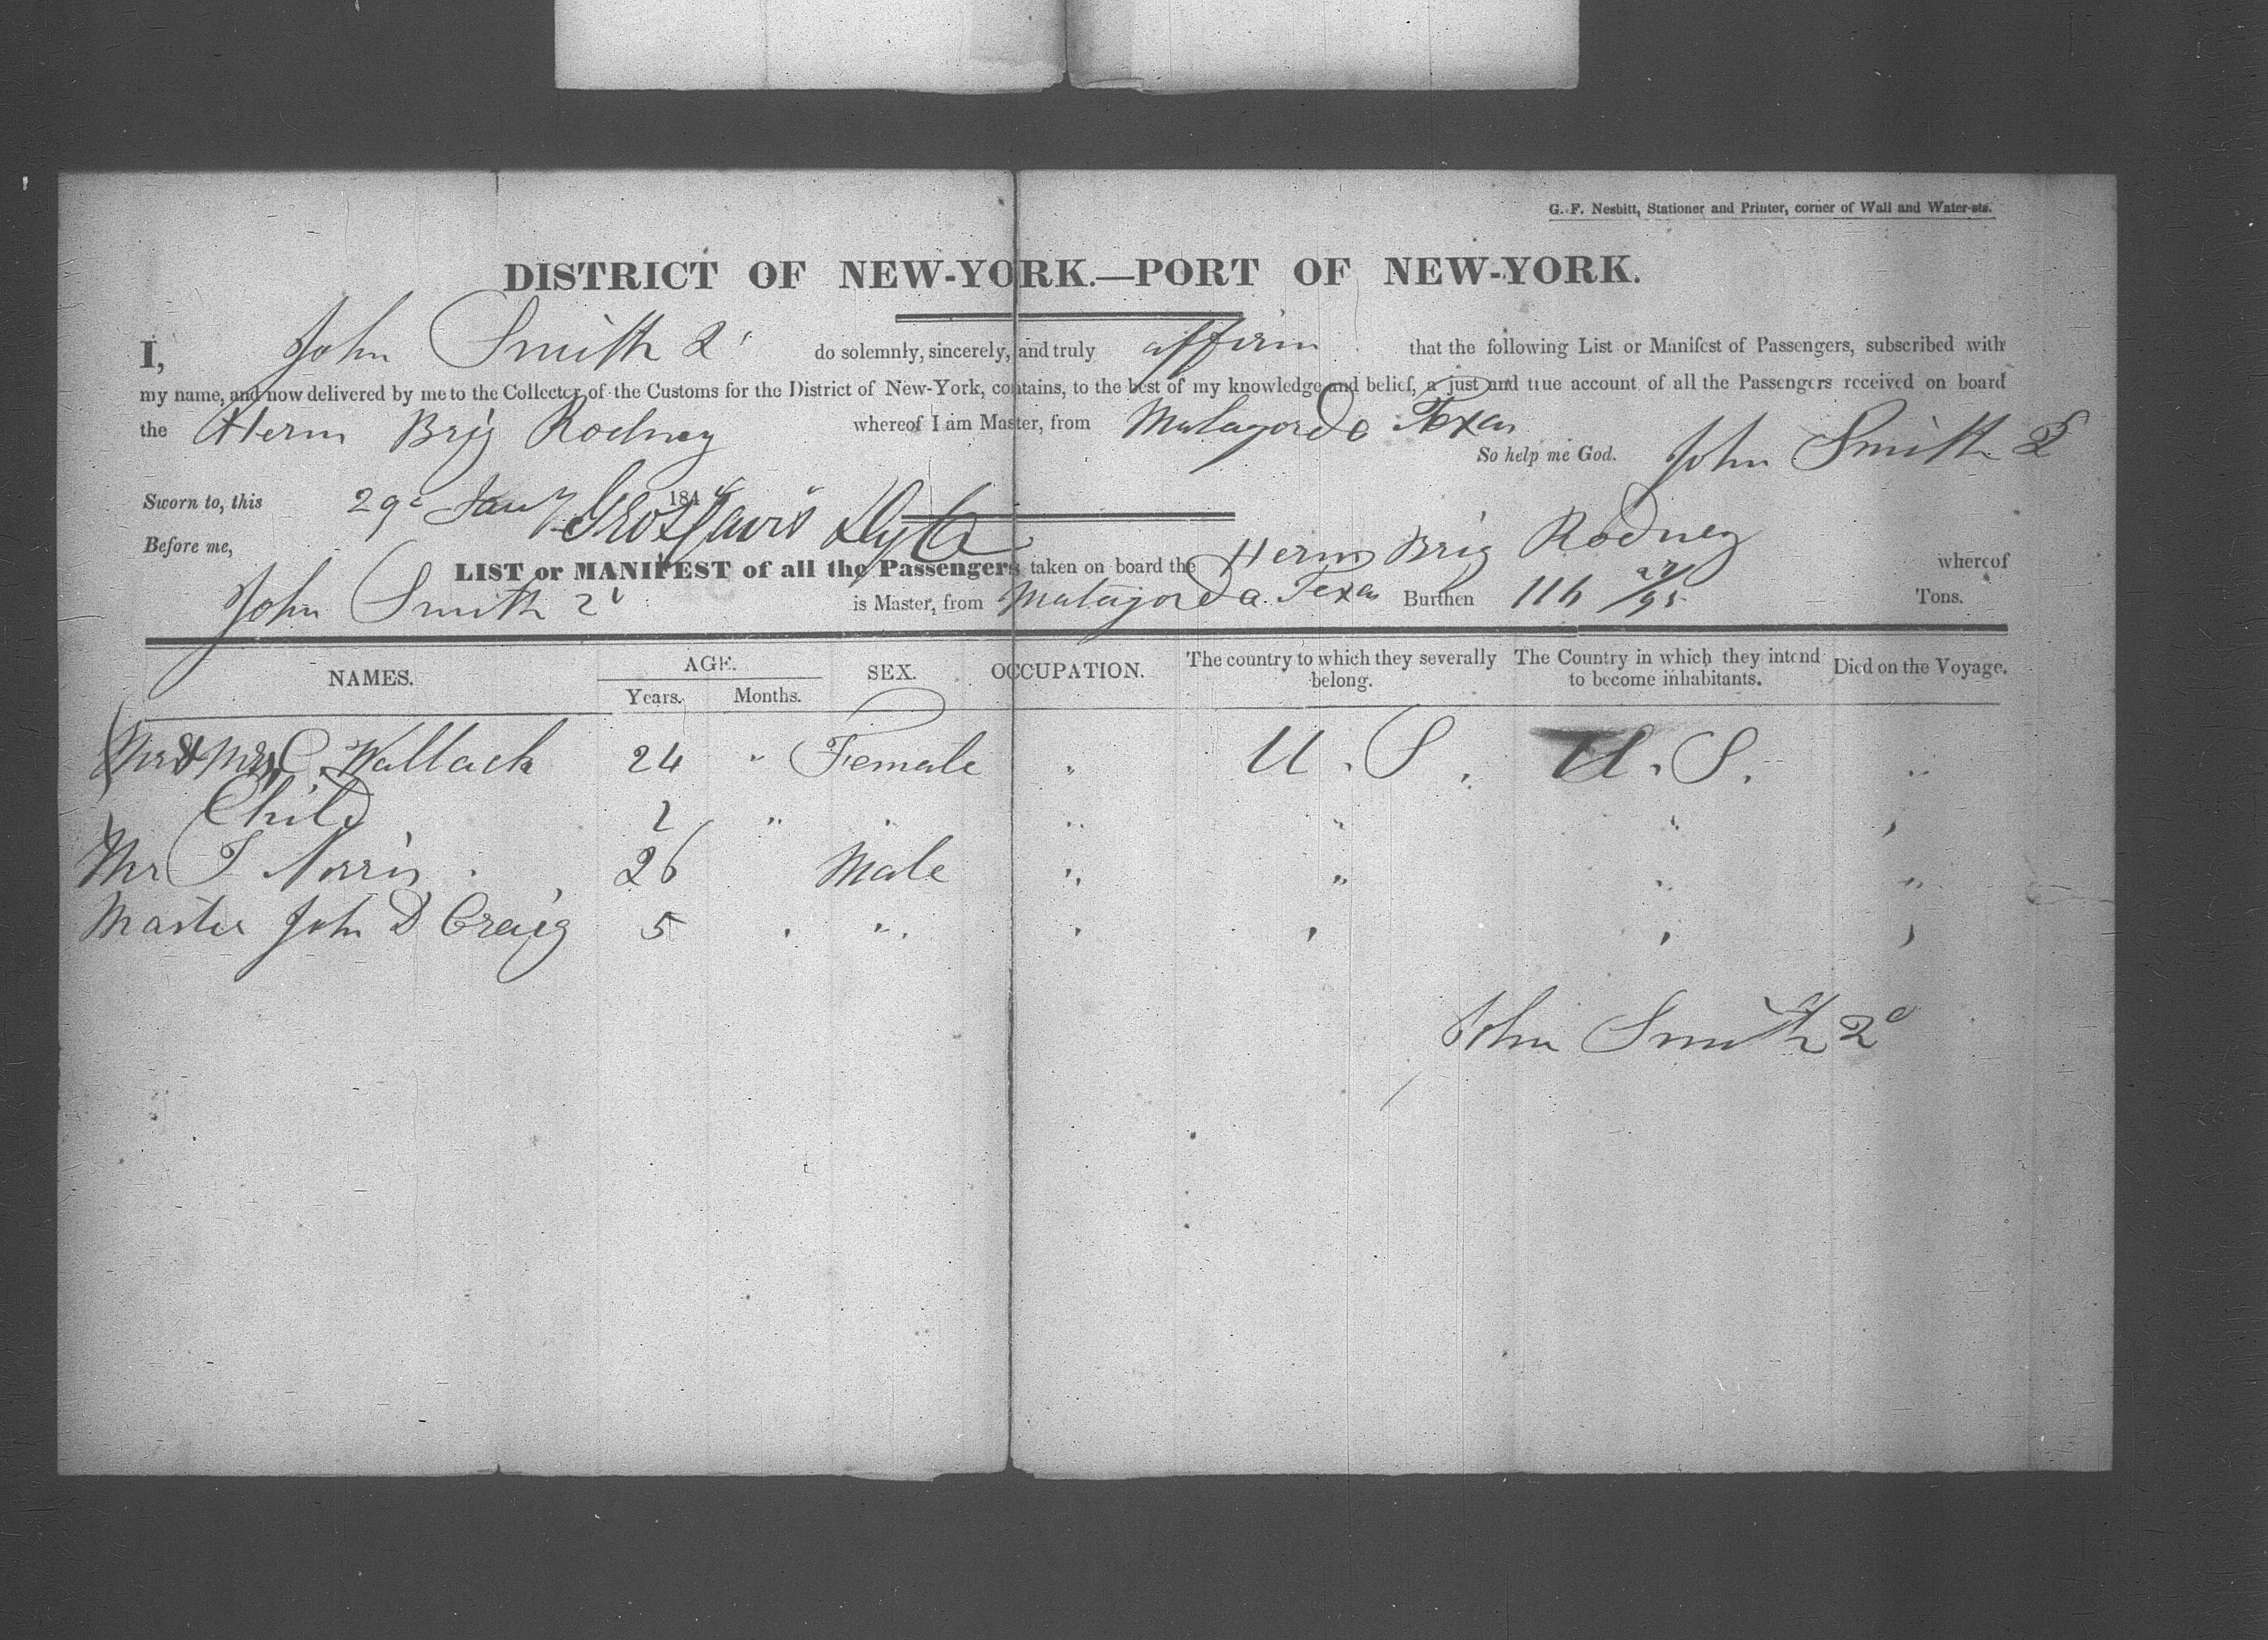 G. F. Nesbitt, Stationer and Printer, corner of Wall and Water-sts.
DISTRICT OF NEW-YORK.—PORT OF NEW-YORK.
I, John Smith 2d do solemnly, sincerely, and truly affirm that the following List or Manifest of Passengers, subscribed with
my name, and now delivered by me to the Collector of the Customs for the District of New-York, contains, to the best of my knowledge and belief, a just and true account of all the Passengers received on board
the Herm Brig Rodney whereof I am Master, from Matagorda Texas
So help me God. John Smith 2d
Sworn to, this 29th Jany 184
Before me,
LIST or MANIFEST of all the Passengers taken on board the Herm Brig Rodney whereof
John Smith 2d is Master, from Matagorda Texas Burthen 116 27/95 Tons.
NAMES. AGE. SEX. OCCUPATION. The country to which they severally belong. The Country in which they intend to become inhabitants. Died on the Voyage.
Years. Months.
Mr & Mrs C. Wallach 24 " Female " U.S. U.S. "
Child " " " " " "
Mr T Norris 26 Male " " " "
Master John D Craig 5 " " " " " "
John Smith 2d